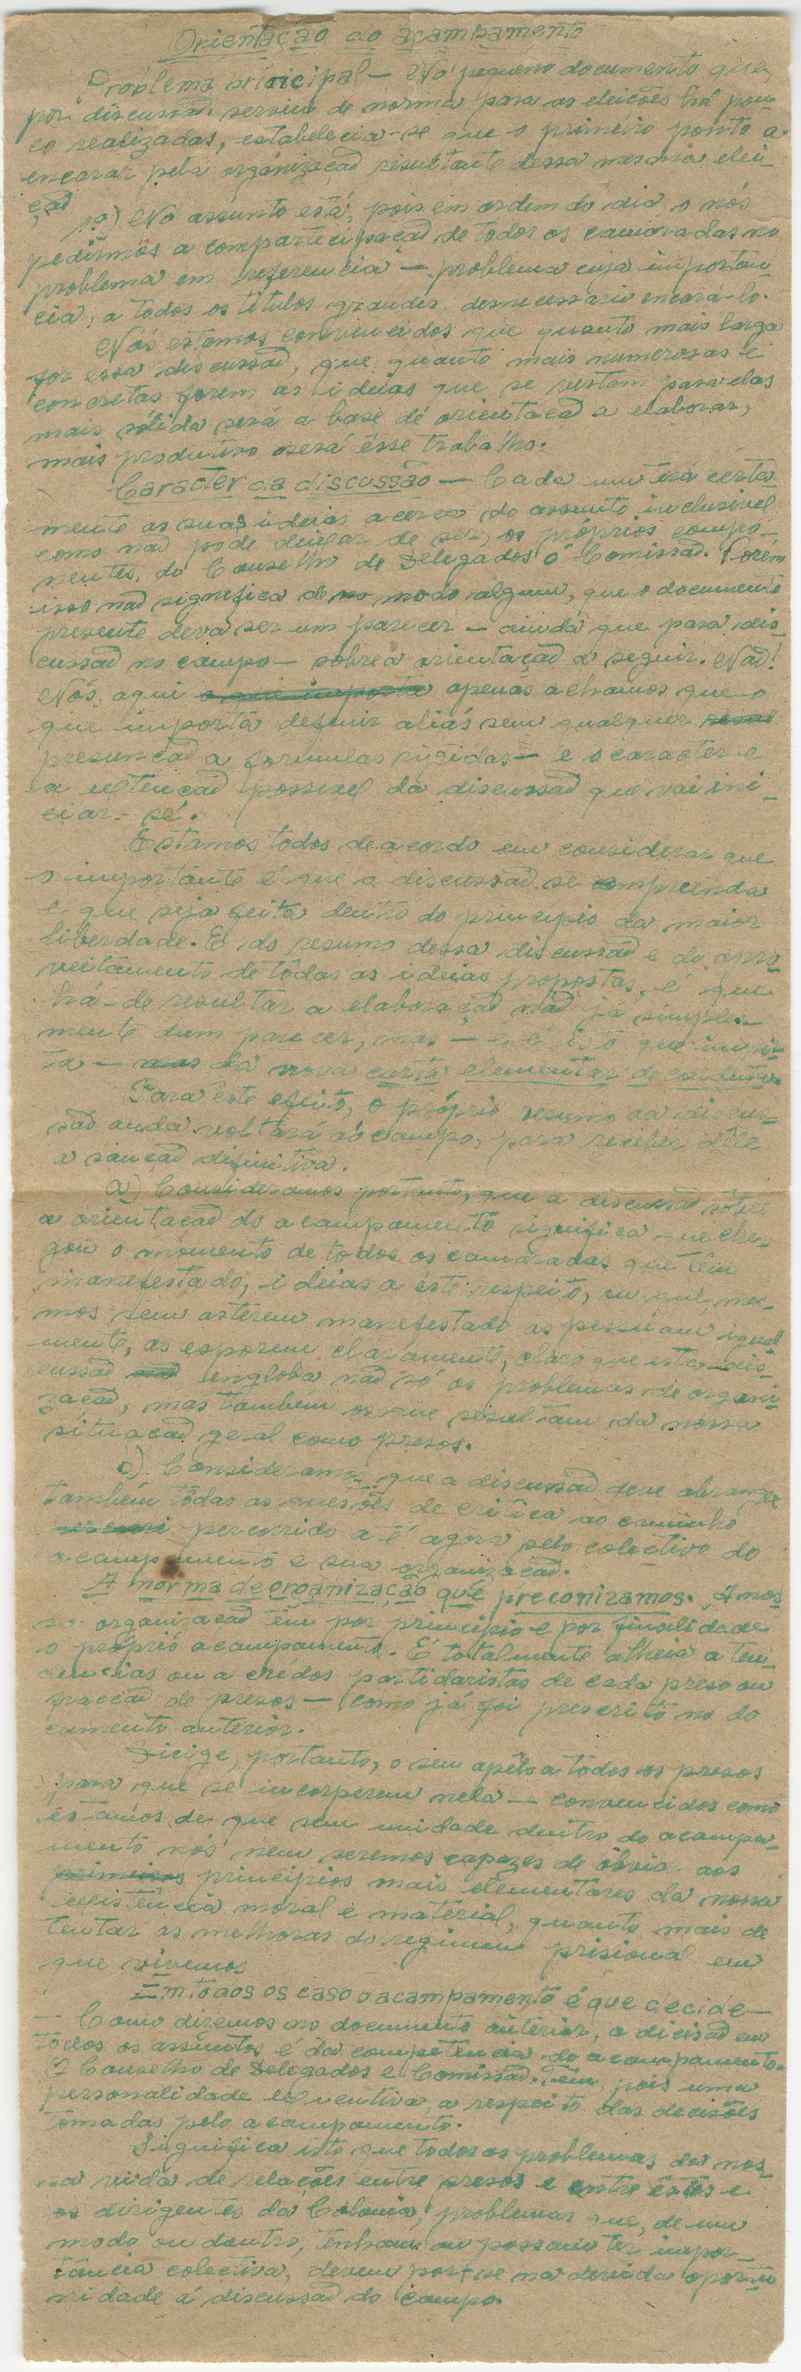 Orientação ao acampamento
Problema principal — No pequeno documento que,
por discussão, serviu de norma para as eleições há pou-
co realizadas, estabelecia-se que o primeiro ponto a
encarar pela organização resultante dessa mesma elei-
ção
1º) No assunto está, pois em ordem do dia o nós
pedirmos a comparticipação de todos os camaradas no
problema em referencia — problema cuja importan
cia, a todos os titulos grande, desnecessário encará-lo.
Nós estamos convencidos que quanto mais larga
for essa discussão, que quanto mais numerosas e
concretas forem as ideias que se vertam para elas
mais sólida será a base de orientação a elaborar,
mais produtivo será êsse trabalho.
Caracter da discussão — Cada um terá certa
mente as suas ideias acerca do assunto inclusivel
como não pode deixar de ser, os próprios compo-
nentes, do Conselho de Delegados e Comissão. Porém
isso não significa de modo algum, que o documento
presente deva ser um parecer — ainda que para dis-
cussão no campo — sobre a orientação a seguir. Não!
Nós aqui apenas achamos que o
que importa definir aliás sem qualquer
presunção a formulas rigidas — e o caracter e
a extenção possivel da discussão que vai ini-
ciar-se.
Estamos todos de acordo em considerar que
o importante é que a discussão se empreenda
e que seja feita dentro do principio da maior
liberdade. E do resumo dessa discussão e do apro
veitamento de tôdas as ideias propostas, é que
há-de resultar a elaboração não já simples-
mente dum parecer, mas — e é isto que impor
ta — da nova carta elementar de conduta.
Para êste efeito, o próprio resumo da discus-
são ainda voltará ao campo, para receber dêle
a sanção definitiva.
a) Consideramos portanto, que a discussão sôbre
a orientação do acampamento significa que che-
gou o momento de todos os camaradas que têm
manifestado, ideias a este respeito, ou que, mes-
mos sem as terem manifestado as possuam igual
mente, as exporem claramente, claro que esta dis-
cussão engloba não só os problemas de organi
zação, mas tambem os que resultam da nossa
situação geral como presos.
c) Consideramos que a discussão deve abranger
também tôdas as questões de critica ao caminho
percorrido até agora pelo colectivo do
acampamento e sua organização.
A norma de organização que preconizamos. A nos
sa organização tem por principio e por finalidade
o próprio acampamento. É totalmente alheia a ten
dencias ou a crédos partidaristas de cada preso ou
fracção de presos — como já foi prescrito no do
cumento anterior.
Dirige, portanto, o seu apêlo a todos os presos
para que se incorporem nela — convencidos como
estamos de que sem unidade dentro do acampa-
mento nós nem seremos capazes de obviar aos
principios mais elementares da nossa
existência moral e material, quanto mais de
tentar as melhoras do regimen prisional em
que vivemos
Em todos os caso o acampamento é que decide —
— Como dizemos no documento anterior, a decisão em
todos os assuntos é da competência do acampamento.
O Conselho de Delegados e Comissão. Têm pois uma
personalidade executiva a respeito das decisões
tomadas pelo acampamento.
Significa isto que todos os problemas da nos
sa vida de relações entre presos e entre êstes e
os dirigentes da Colonia, problemas que, de um
modo ou doutro, tenham ou possam ter impor-
tância colectiva, devem pôr-se na devida oportu
nidade á discussão do campo.